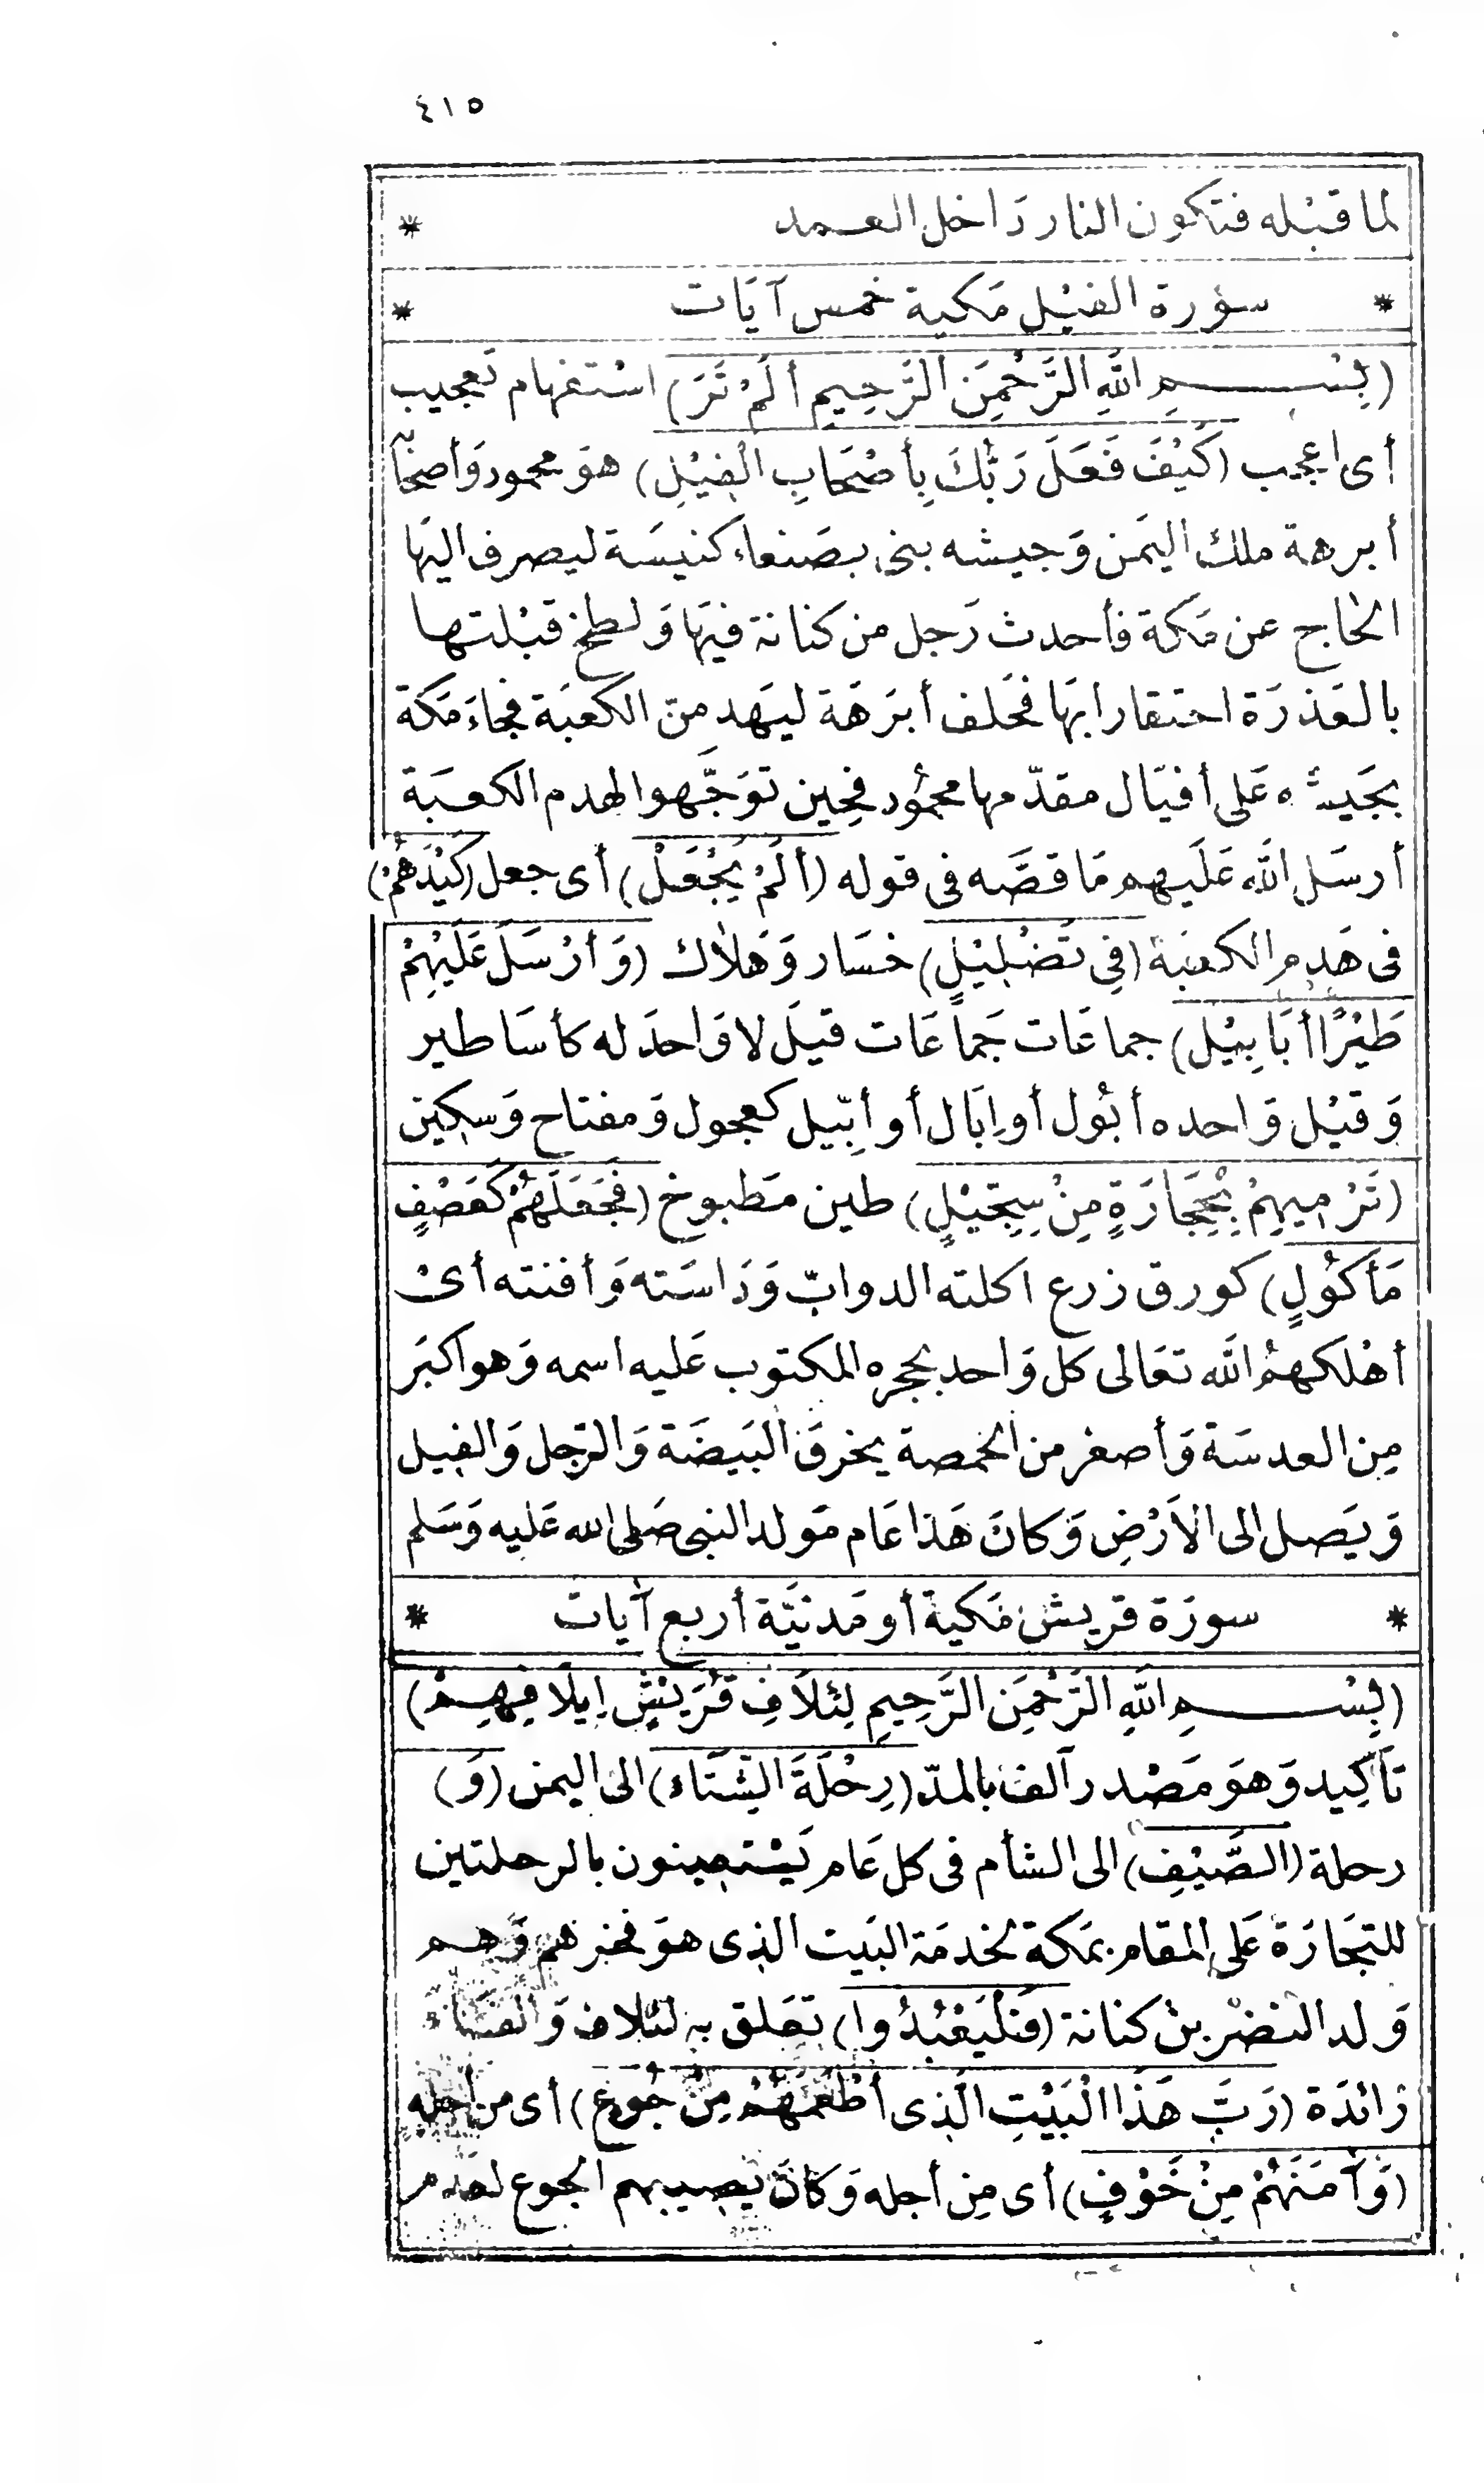 ٤١٥
لما قبْله فتكون النار دَاخل العـمد *
* سورة الفيْل مَكية خمس آيَات *
(بِسْـــمِ اللَّهِ الرَّحْمِنَ الرَّحِيمِ أَلَمْ تَرَ) اسْتفهام تَعجيب
أى اعجب (كَيْفَ فَعَلَ رَبُّكَ بِأَصْحَابِ الْفِيْلِ) هوَ محمود وَأصحَابه
أبرهة ملك اليَمن وَجيشه بنى بصَنعاء كنيسَة ليصرف اليهَا
الحاج عن مَكة فأحدث رَجل من كنانة فيهَا وَلطخ قبْلتها
بالعَذرَة احتقارا بهَا فحَلف أبرَهَة ليَهدمنّ الكعبَة فجاءَ مَكة
بجَيشه عَلى أفيَال مقدّمها محمُود فحِين توَجَّهوا لهدم الكعبَة
أرسَل اللَّه عَلَيهم مَا قصَّه فى قوله (أَلَمْ يَجْعَلْ) أى جعل (كَيْدَهُمْ)
فى هَدم الكعبَة (فِي تَضْلِيْلٍ) خسَار وَهَلاك (وَأَرْسَلَ عَلَيْهِمْ
طَيْرًا أَبَابِيْل) جماعَات جَماعَات قيلَ لا وَاحدَ له كأسَاطير
وَقيْل وَاحده أبُول أو إبَال أو أبِّيل كعجول وَمفتاح وَسكين
(تَرْمِيهِمْ بِحِجَارَةٍ مِنْ سِجِّيْلٍ) طين مَطبوخ (فَجَعَلَهُمْ كَعَصْفٍ
مَأْكُوْلٍ) كورق زرع اكلته الدوابّ وَدَاسَته وَأفنته أىْ
أهْلكهمُ اللَّه تعَالى كل وَاحد بحجره المكتوب عَليه اسمه وَهو اكبَر
مِن العدسَة وَأصغر من الحمصة يخرق البَيضَة وَالرّجل وَالفيل
وَيَصل الى الاَرْضِ وَكانَ هَذا عَام مَولد النبى صَلى الله عَليه وَسَلم
* سورَة قريش مَكية أو مَدنيَّة أربع آيات *
(بِسْـــمِ اللَّهِ الرَّحْمِنَ الرَّحِيمِ لِئَلاَفِ قُرَيْشٍ إِيلَافِهِمْ)
تأكِيد وَهوَ مَصْدر آلف بالمدّ (رِحْلَةَ الشِّتَاء) الى اليمن (وَ)
رحلة (الصَّيْفِ) الى الشأم فى كل عَام يَسْتعينون بالرحلتين
للتجَارَة عَلى المقام بمَكة لخدمَة البَيت الذى هوَ فخرهم وَهـم
وَلد النضْر بنْ كنانة (فَلْيَعْبُدُوا) تعَلق به لئلاف وَالفَاء
زائدَة (رَبَّ هَذَا الْبَيْتِ الَّذِى أَطْعَمَهُمْ مِنْ جُوْعٍ) أى من أجله
(وَآمَنَهُمْ مِنْ خَوْفٍ) أى مِن أجله وَكانَ يصيبهم الجوع لعَدم